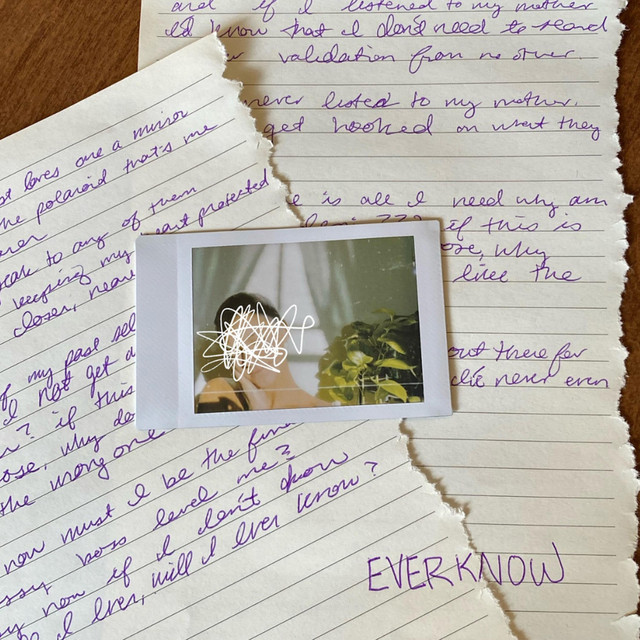 and if I listened to my mother
I'd know that I don't need to
validation from no other.
never listed to my mother.
get hooked on what they
is all I need why am
if this is
ose, why
like the
out there for
never even
loves one a mirror
the polaroid that's me
to any of them
keeping my heart protected
closer,
of my past sel
I not get a
? if this
ose, why do
the wrong one
now must I be the fin
boss level me?
now if I don't know
I ever, will I ever know?
EVERKNOW